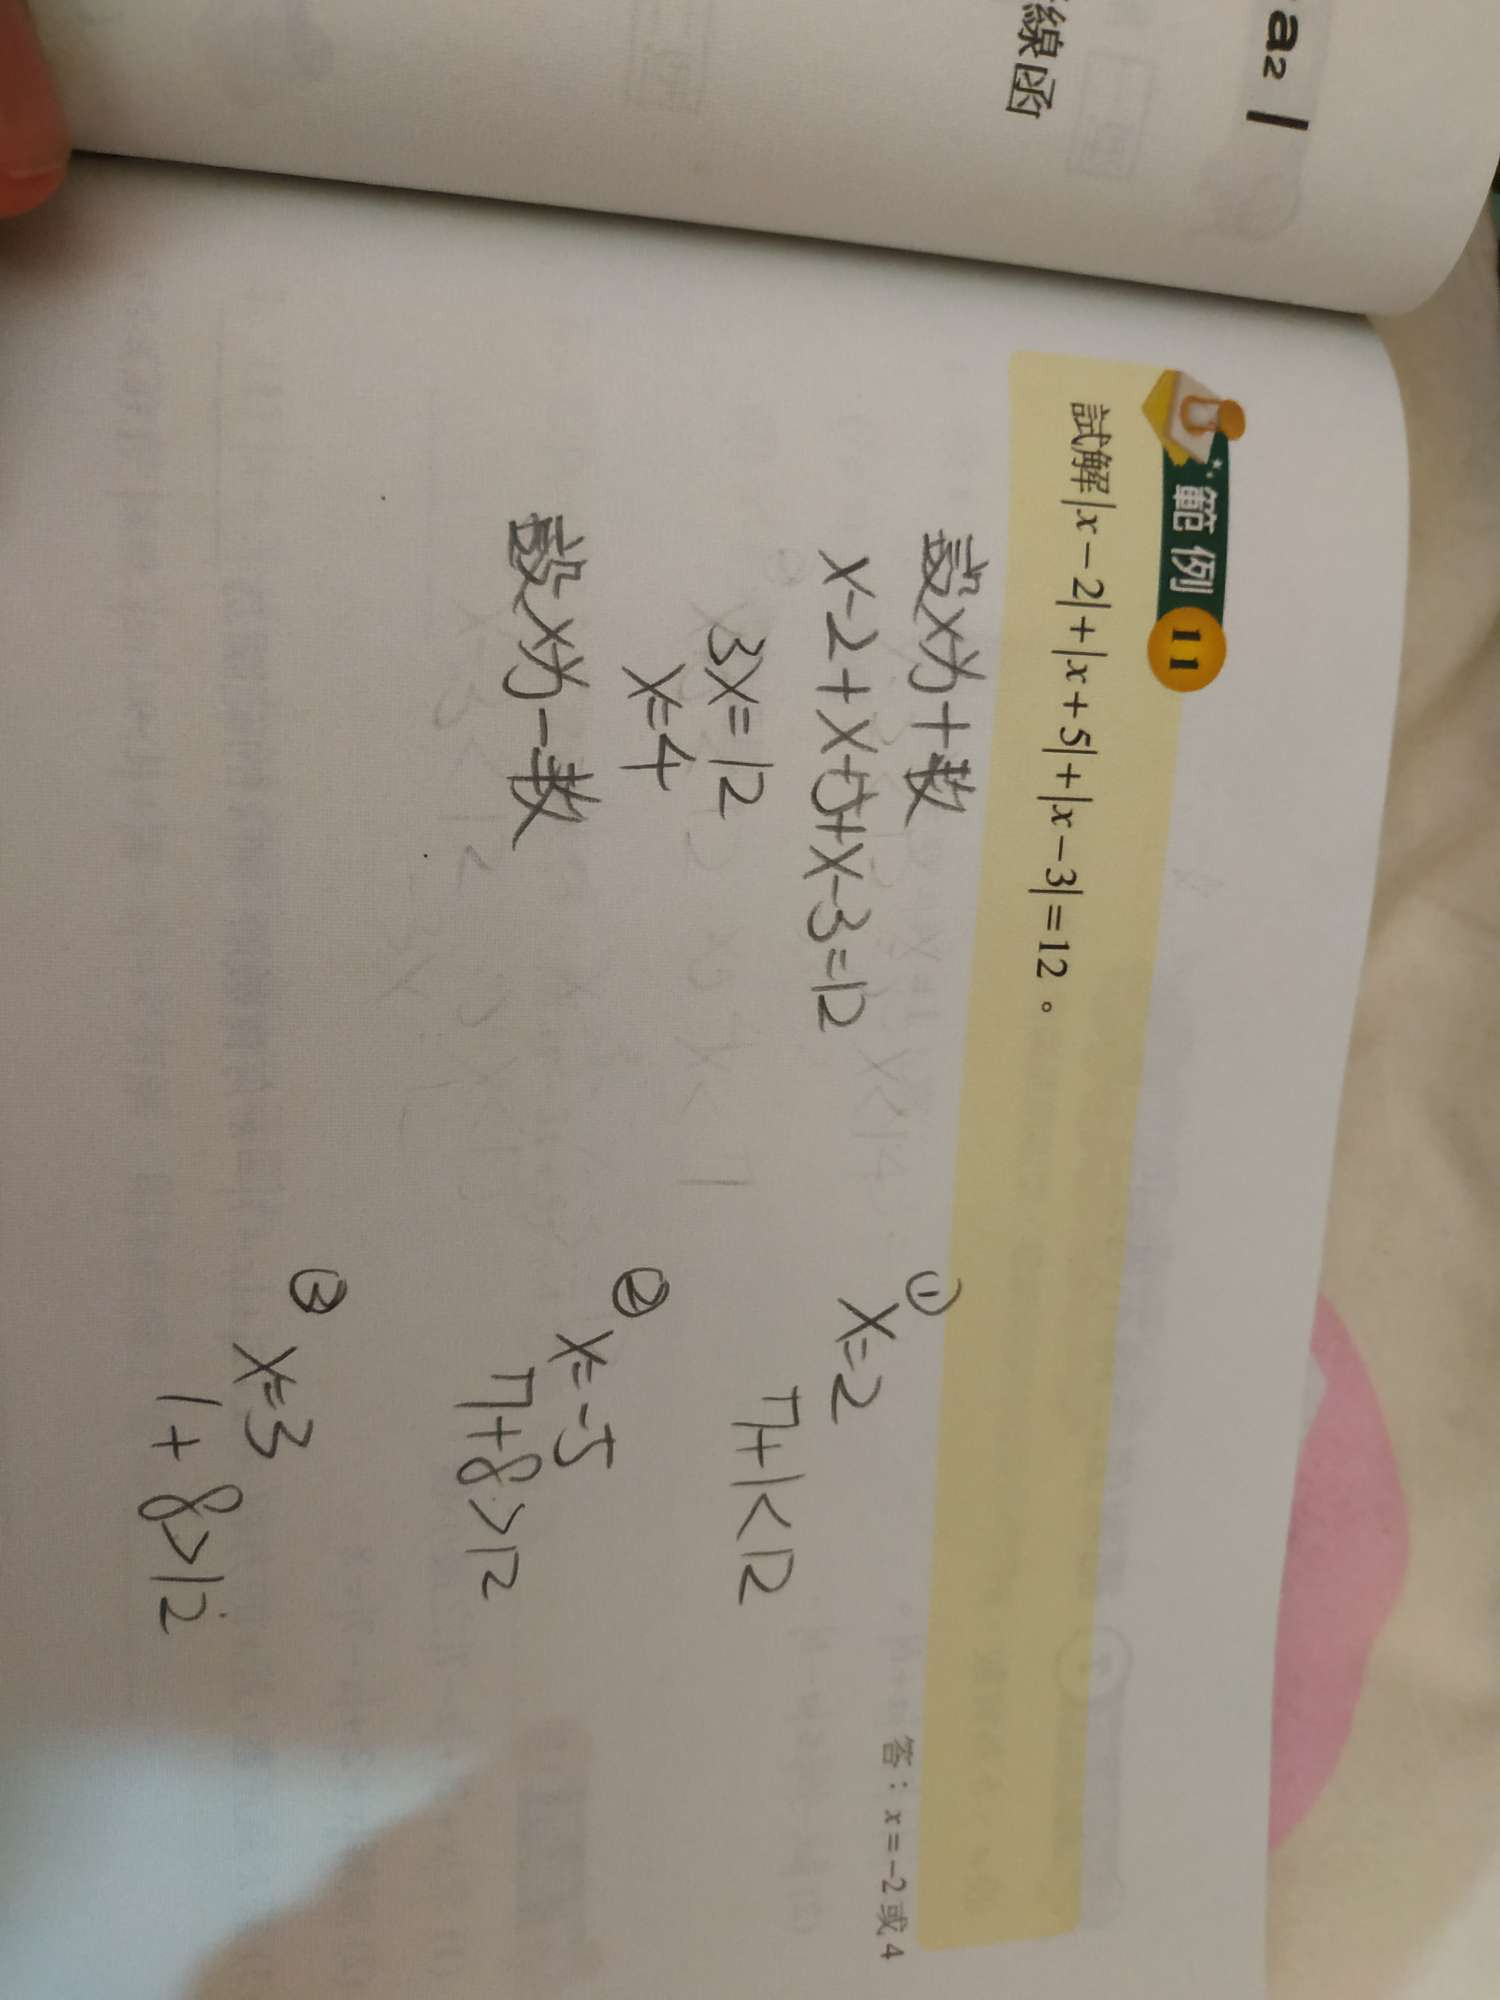 a₂|
線函
範例 11
試解|x-2|+|x+5|+|x-3|=12。
答：x=-2或4
設x为+数
x-2+x+5+x-3=12
3x=12
x=4
設x为-数
①
x=2
7+1<12
②
x=-5
7+8>12
③
x=3
1+8>12